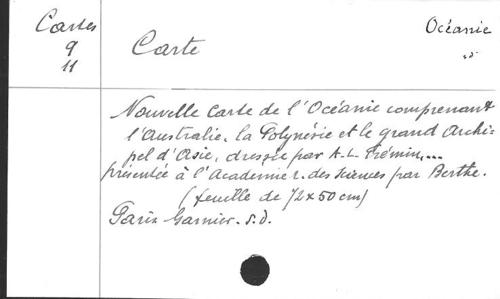 Cartes
9
11
Carte
Océanie
s.d
Nouvelle Carte de l'Océanie comprenant
l'Australie, la Polynésie et le grand Archi-
pel d'Asie, dressée par A-L. Frémin,...
présentée à l'Academie r. des Sciences par Berthe.
(feuille de 72x50 cm)
Paris Garnier. s.d.